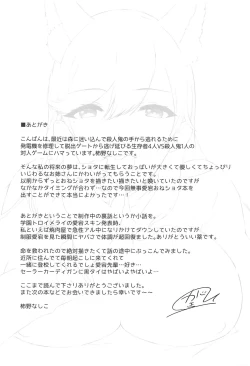 ■あとがき
こんばんは、最近は森に迷い込んで殺人鬼の手から逃れるために
発電機を修理して脱出ゲートから逃げ延びる生存者4人VS殺人鬼1人の
対人ゲームにハマっています。栁野なしこです。
そんな私の将来の夢は、ショタに転生しておっぱいが大きくて優しくてちょっぴり
いじわるなお姉さんにかわいがってもらうことです。
以前からずっとおねショタを描きたい描きたいと嘆いていたのですが
なかなかタイミングが合わず…なので今回無事愛宕おねショタ本を
出すことができて本当によかったです…！
あとがきということで制作中の裏話というか小話を。
学園トロイメライの愛宕スキン発表時、
私といえば焼肉屋で急性アル中になりかけてダウンしていたのですが
制服愛宕を見た瞬間にヤバさで体調が超回復をしました。ありがとういい薬です。
命を救われたので絶対描きたくて話の途中にぶっこんでみました。
近所に住んでて毎朝起こしに来てくれて
一緒に登校してくれるでしょ愛宕先輩…好き…
セーラーカーディガンに黒タイはやばいよやばいよ…
ここまで読んで下さりありがとうございました。
また次の本などでお会いできましたら幸いです〜〜
栁野なしこ